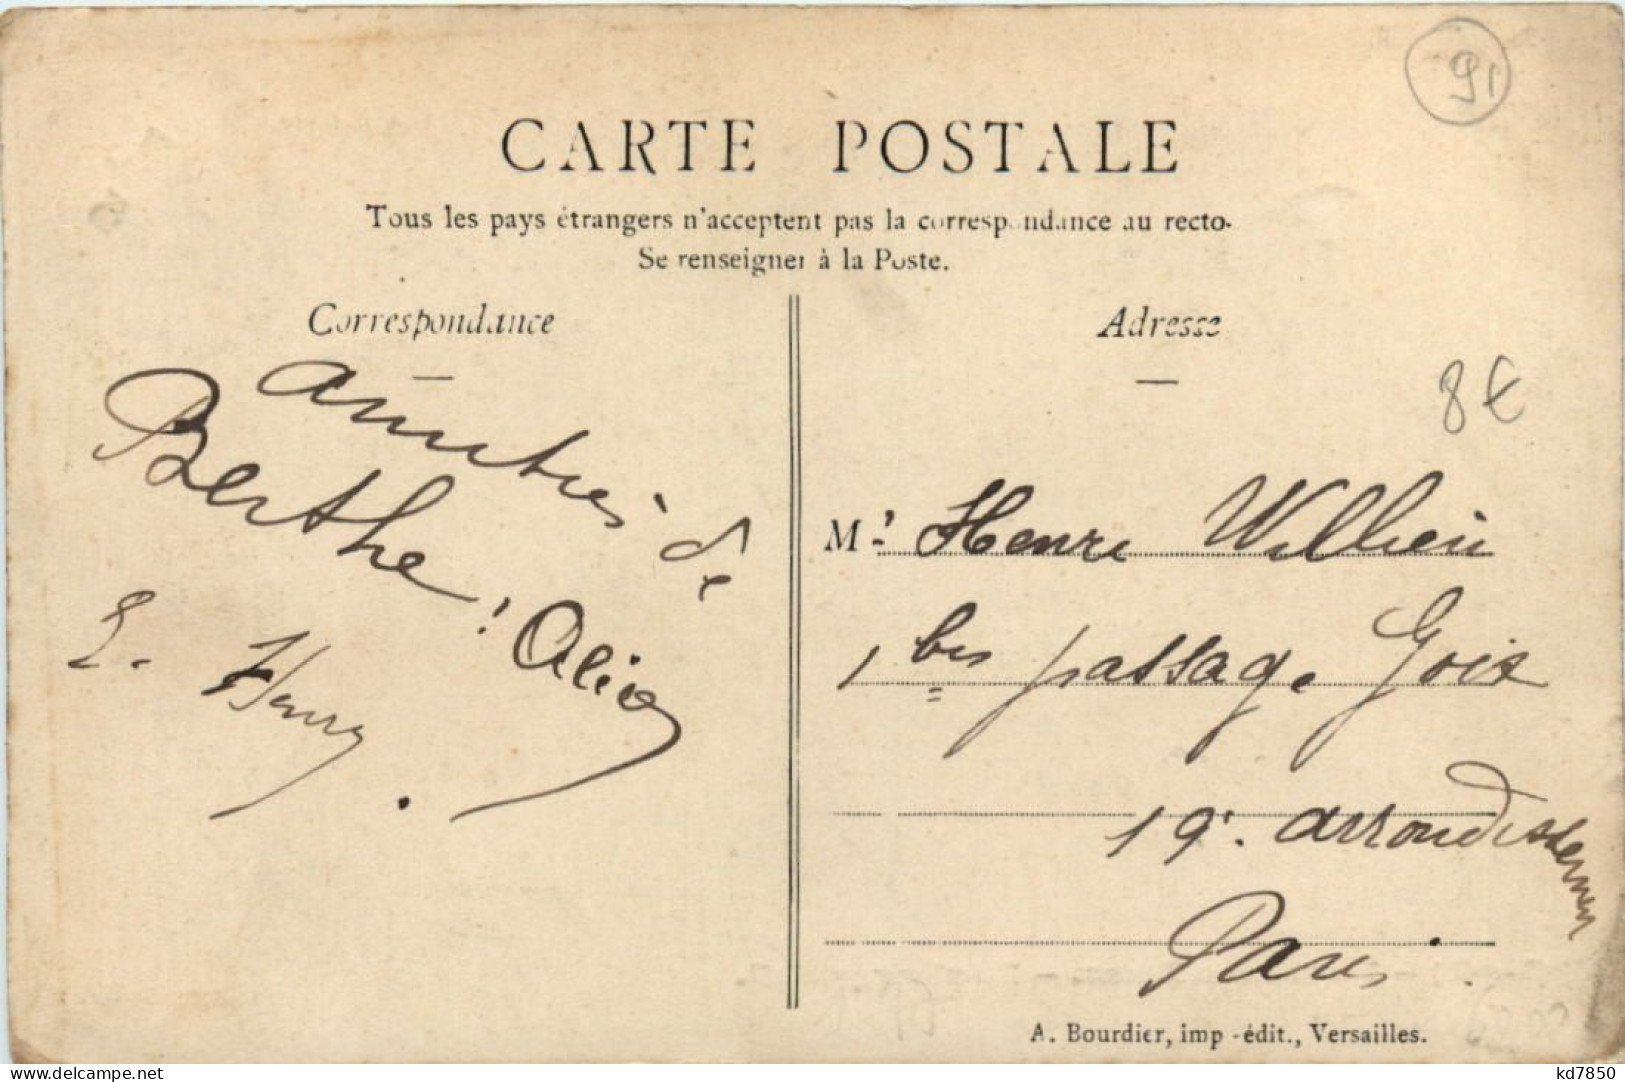 91
CARTE POSTALE
Tous les pays étrangers n'acceptent pas la correspondance au recto.
Se renseigner à la Poste.
Correspondance
Adresse
8€
Amitiés de
Berthe! Alice
E. Henry.
Mr. Henri
1 bis passage Goix
19e. arrondissement
Paris
A. Bourdier, imp-édit., Versailles.
www.delcampe.net
kd7850